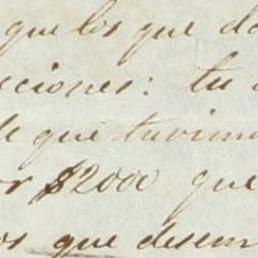 que los que d
ciones: tu
de que tuvim
or $2000 que
os que desem